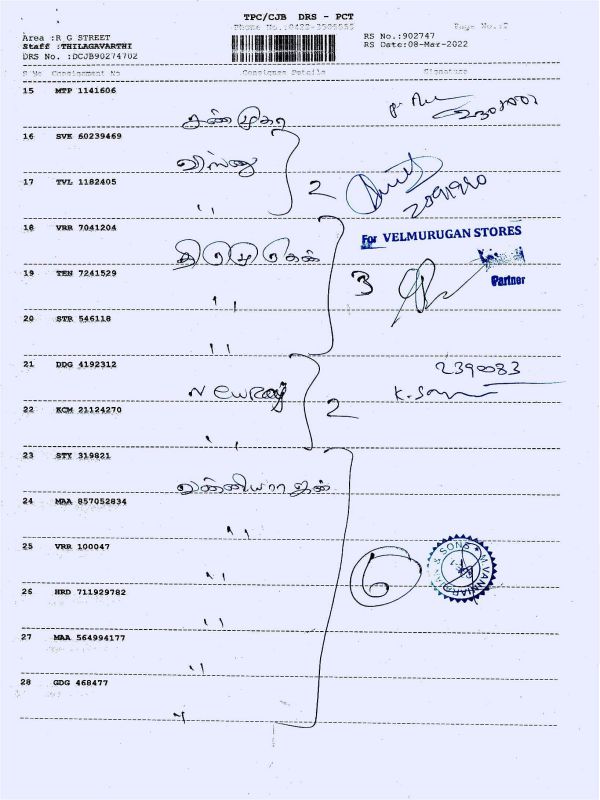 TPC/CJB DRS - PCT
Page No.:2
Area :R G STREET
RS No.:902747
Staff :THILAGAVARTHI
RS Date:08-Mar-2022
DRS No. :DCJB90274702
S No Consignment No Consignee Details Signature
15 MTP 1141606
சண்முகா
16 SVE 60239469
விஸ்ணு
2
17 TVL 1182405
,,
18 VRR 7041204
திருமுருகன்
For VELMURUGAN STORES
Partner
19 TEN 7241529
,,
3
20 STR 546118
,,
21 DDG 4192312
2390083
Neuray
K.
22 KCM 21124270
2
,,
23 STY 319821
வன்னியராஜன்
24 MAA 857052834
,,
25 VRR 100047
,,
6
26 HRD 711929782
,,
27 MAA 564994177
,,
28 GDG 468477
,,